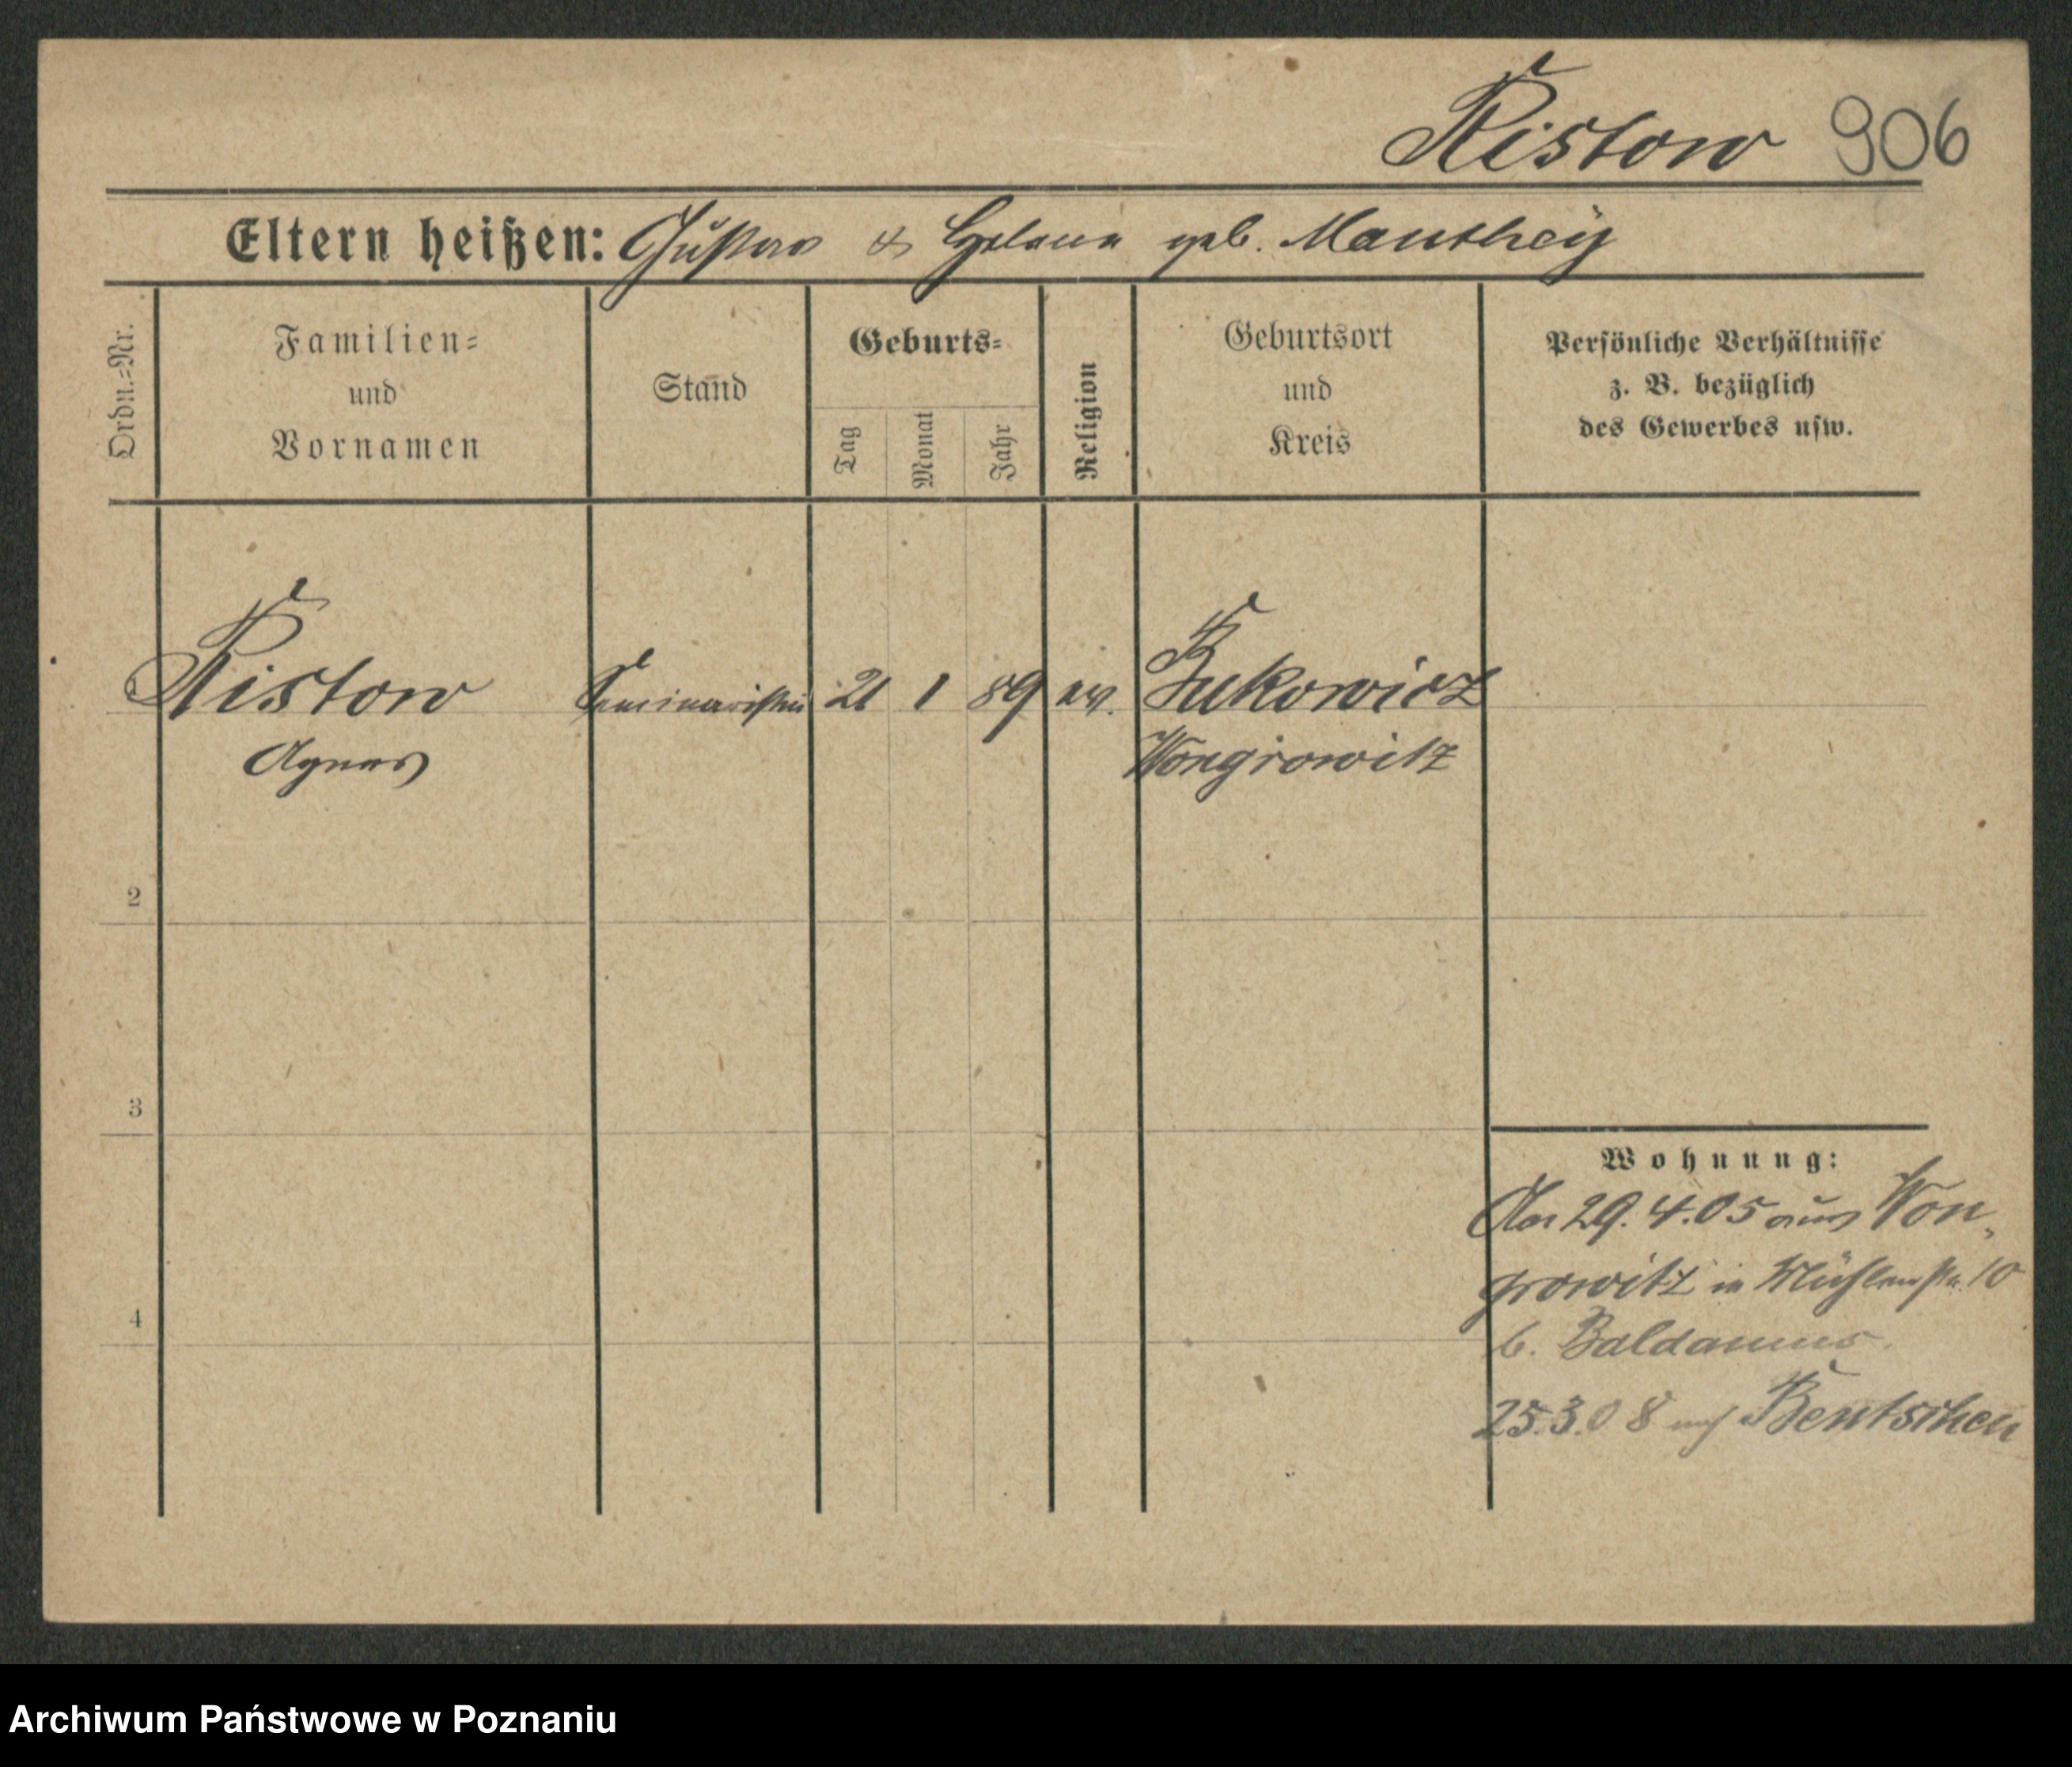 Ristow 906
Eltern heißen: Gustav & Helene geb. Manthey
Ordn.-Nr.
Familien-
und
Vornamen
Stand
Geburts-
Tag
Monat
Jahr
Religion
Geburtsort
und
Kreis
Persönliche Verhältnisse
z. B. bezüglich
des Gewerbes usw.
Ristow Seminaristin 21 1 89 ev. Bukowicz
Agnes Wongrowitz
2
3
4
Wohnung:
Am 29. 4. 05 aus Won-
growitz in Mühlenstr. 10
b. Baldamus.
25.3.08 nach Bentschen
Archiwum Państwowe w Poznaniu